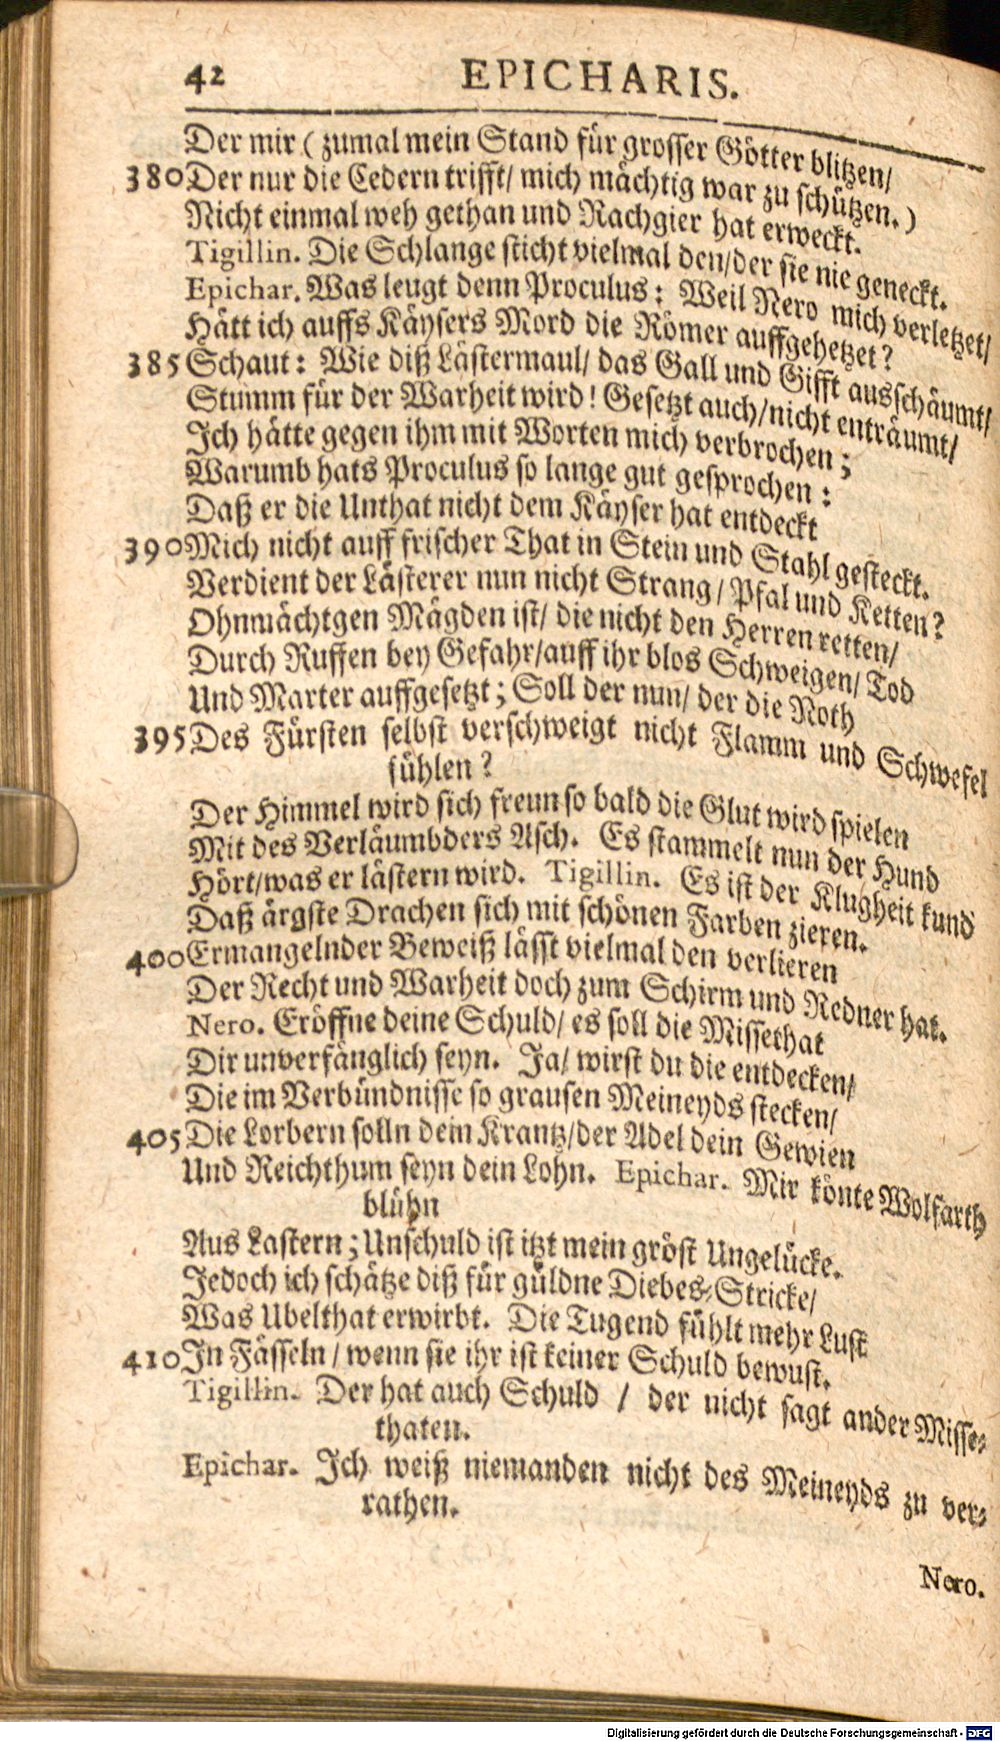 42 EPICHARIS.
Der mir ( zumal mein Stand für grosser Götter blitzen/
380 Der nur die Cedern trifft/ mich mächtig war zu schützen. )
Nicht einmal weh gethan und Rachgier hat erweckt.
Tigillin. Die Schlange sticht vielmal den/der sie nie geneckt.
Epichar. Was leugt denn Proculus: Weil Nero mich verletzet/
Hätt ich auffs Käysers Mord die Römer auffgehetzet?
385 Schaut: Wie diß Lästermaul/ das Gall und Gifft ausschäumt/
Stumm für der Warheit wird! Gesetzt auch/nicht enträumt/
Ich hätte gegen ihm mit Worten mich verbrochen;
Warumb hats Proculus so lange gut gesprochen:
Daß er die Unthat nicht dem Käyser hat entdeckt
390 Mich nicht auff frischer That in Stein und Stahl gesteckt.
Verdient der Lästerer nun nicht Strang/ Pfal und Ketten?
Ohnmächtgen Mägden ist/ die nicht den Herren retten/
Durch Ruffen bey Gefahr/auff ihr blos Schweigen/ Tod
Und Marter auffgesetzt; Soll der nun/ der die Noth
395 Des Fürsten selbst verschweigt nicht Flamm und Schwefel
fühlen?
Der Himmel wird sich freun so bald die Glut wird spielen
Mit des Verläumbders Asch. Es stammelt nun der Hund
Hört/was er lästern wird. Tigillin. Es ist der Klugheit kund
Daß ärgste Drachen sich mit schönen Farben zieren.
400 Ermangelnder Beweiß lässt vielmal den verlieren
Der Recht und Warheit doch zum Schirm und Redner hat.
Nero. Eröffne deine Schuld/ es soll die Missethat
Dir unverfänglich seyn. Ja/ wirst du die entdecken/
Die im Verbündnisse so grausen Meineyds stecken/
405 Die Lorbern solln dein Krantz/der Adel dein Gewien
Und Reichthum seyn dein Lohn. Epichar. Mir könte Wolfarth
blühn
Aus Lastern; Unschuld ist itzt mein gröst Ungelücke.
Jedoch ich schätze diß für güldne Diebes-Stricke/
Was Ubelthat erwirbt. Die Tugend fühlt mehr Lust
410 In Fässeln/ wenn sie ihr ist keiner Schuld bewust.
Tigillin. Der hat auch Schuld / der nicht sagt ander Misse-
thaten.
Epichar. Ich weiß niemanden nicht des Meineyds zu ver-
rathen.
Nero.
Digitalisierung gefördert durch die Deutsche Forschungsgemeinschaft - DFG